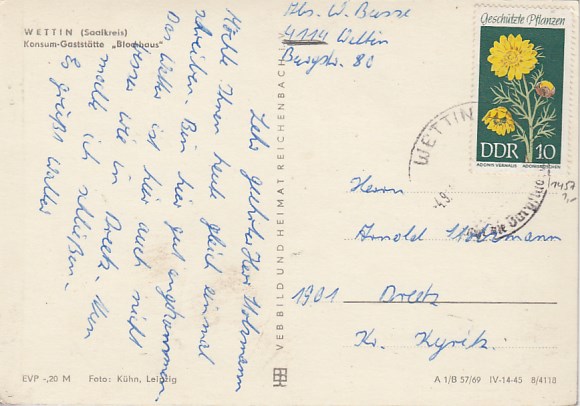 WETTIN (Saalkreis)
Konsum-Gaststätte „Blockhaus"
Sehr geehrter Herr Holzmann
Möchte Ihnen heute gleich einmal
schreiben. Bin hier gut angekommen.
Das Wetter ist hier auch nicht
besser wie in Dreetz. Nun
möchte ich schließen.
Es grüßt Walter
EVP -,20 M Foto: Kühn, Leipzig
VEB BILD UND HEIMAT REICHENBACH
Abs. W. Busse
4114 Wettin
Burgstr. 80
Geschützte Pflanzen
DDR 10
ADONIS VERNALIS ADONISRÖSCHEN
WETTIN
Herrn
Arnold Holzmann
1901 Dreetz
Kr. Kyritz
A 1/B 57/69 IV-14-45 8/4118